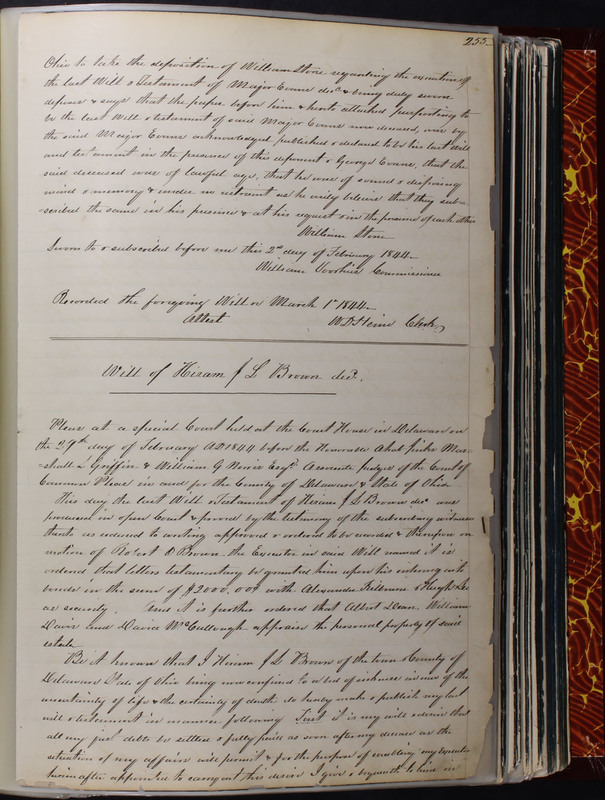 255
Ohio to take the deposition of William Stone regarding the execution of
the last Will & Testament of Major Evans decd & being duly sworn
deposes & says that the paper before him & hereto attached purporting to
be the last Will & testament of said Major Evans now deceased, was by
the said Major Evans acknowledged published & declared to be his last will
and testament in the presence of this deponent & George Evans, that the
said deceased was of lawful age, that he was of sound & disposing
mind & memory & under no restraint as he verily believes that they sub-
-scribed the same in his presence & at his request & in the presence of each other
William Stone
Sworn to & subscribed before me this 2nd day of February 1844
William Voorhies Commissioner
Recorded the foregoing Will on March 1st 1844
Attest
W D Heim Clerk
Will of Hiram J L Brown decd.
Pleas at a special Court held at the Court House in Delaware on
the 29th day of February AD 1844 before the Honorable Ahab Jinks Mar-
-shall L Griffin & William G Norris Esqrs Associate Judges of the Court of
Common Pleas in and for the County of Delaware & State of Ohio
This day the last Will & Testament of Hiram J L Brown decd was
produced in open Court & proved by the testimony of the subscribing witnesses
thereto as reduced to writing approved & ordered to be recorded & thereupon on
motion of Robert O Brown the Executor in said Will named it is
ordered that letters testamentary be granted him upon his entering into
bonds in the sum of $2000,00 with Alexander Kilbourn & Hugh Lee
as security. And it is further ordered that Albert Dean, William
Davis and David McCullough appraise the personal property of said
estate
Be it known that I Hiram J L Brown of the town & County of
Delaware State of Ohio being now confined to a bed of sickness in view of the
uncertainty of life & the certainty of death do hereby make & publish my last
will & testament in manner following First it is my will & desire that
all my just debts be settled & fully paid as soon after my decease as the
situation of my affairs will permit & for the purpose of enabling my Executor
herein after appointed to carry out this desire I give & bequeath to him in